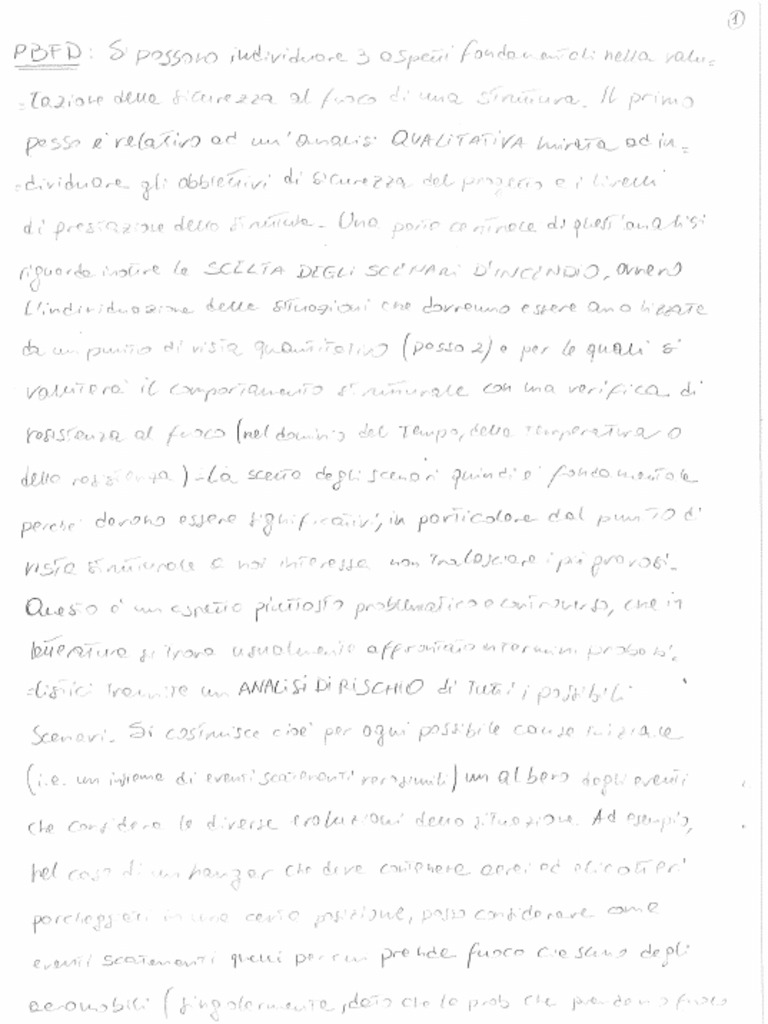 1
PBFD: Si possono individuare 3 aspetti fondamentali nella valu=
=tazione della sicurezza al fuoco di una struttura. Il primo
passo è relativo ad un'analisi QUALITATIVA mirata ad in=
=dividuare gli obbiettivi di sicurezza del progetto e i livelli
di prestazione della struttura. Una parte centrale di quest'analisi
riguarda inoltre la SCELTA DEGLI SCENARI D'INCENDIO, ovvero
l'individuazione delle situazioni che dovranno essere analizzate
da un punto di vista quantitativo (passo 2) e per le quali si
valuterà il comportamento strutturale con una verifica di
resistenza al fuoco (nel dominio del tempo, della temperatura o
della resistenza). La scelta degli scenari quindi è fondamentale
perché devono essere significativi, in particolare dal punto di
vista strutturale a noi interessa non tralasciare i più gravosi.
Questo è un aspetto piuttosto problematico e controverso, che in
letteratura si trova usualmente affrontato in termini probabi=
=listici tramite un ANALISI DI RISCHIO di tutti i possibili
scenari. Si costruisce cioè per ogni possibile causa iniziale
(i.e. un insieme di eventi scatenanti verosimili) un albero degli eventi
che considera le diverse evoluzioni della situazione. Ad esempio,
nel caso di un hangar che deve contenere aerei ed elicotteri
parcheggiati in una certa posizione, posso considerare come
eventi scatenanti quelli per cui prende fuoco ciascuno degli
aeromobili (singolarmente, dato che la prob che prendano fuoco